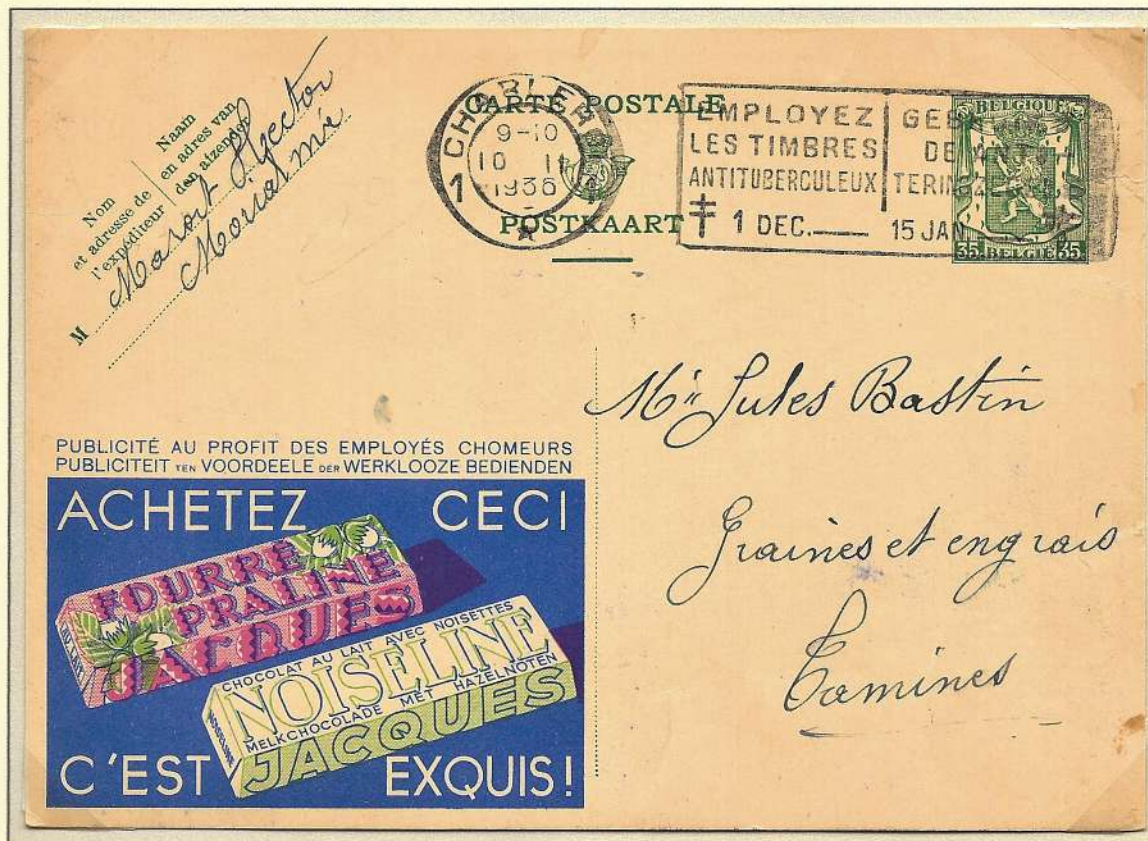 Nom
et adresse de
l'expéditeur
Naam
en adres van
den afzender
M
Hector
CARTE POSTALE
POSTKAART
1 CHARLER 1
9-10
10 II
1936
EMPLOYEZ
LES TIMBRES
ANTITUBERCULEUX
1 DEC.
GEB
DE
TERIN
15 JAN
BELGIQUE
35 BELGIË 35
Mr Jules Bastin
Graines et engrais
Tamines
PUBLICITÉ AU PROFIT DES EMPLOYÉS CHOMEURS
PUBLICITEIT TEN VOORDEELE DER WERKLOOZE BEDIENDEN
ACHETEZ CECI
FOURRÉ
PRALINE
JACQUES
CHOCOLAT AU LAIT AVEC NOISETTES
NOISELINE
NOISELINE
MELKCHOCOLADE MET HAZELNOTEN
JACQUES
C'EST EXQUIS!